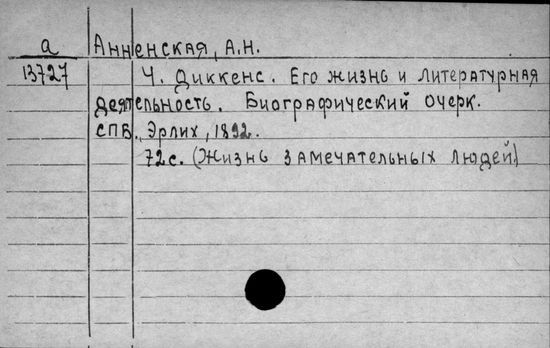 а Анненская, А.Н.
13727 Ч. Диккенс. Его жизнь и литературная
деятельность. Биографический очерк.
СПБ., Эрлих, 1892.
72с. (Жизнь замечательных людей)